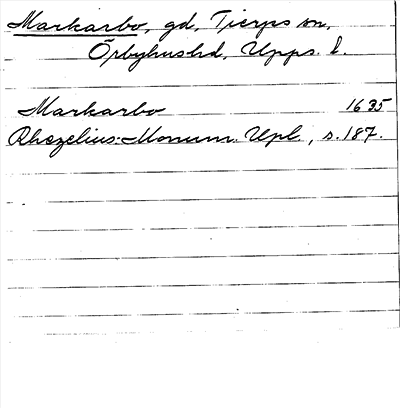 Markarbo, gd, Tierps sn,
Örbyhushd, Upps. l.
Markarbo 1635
Rhezelius: Monum. Upl., s. 187.